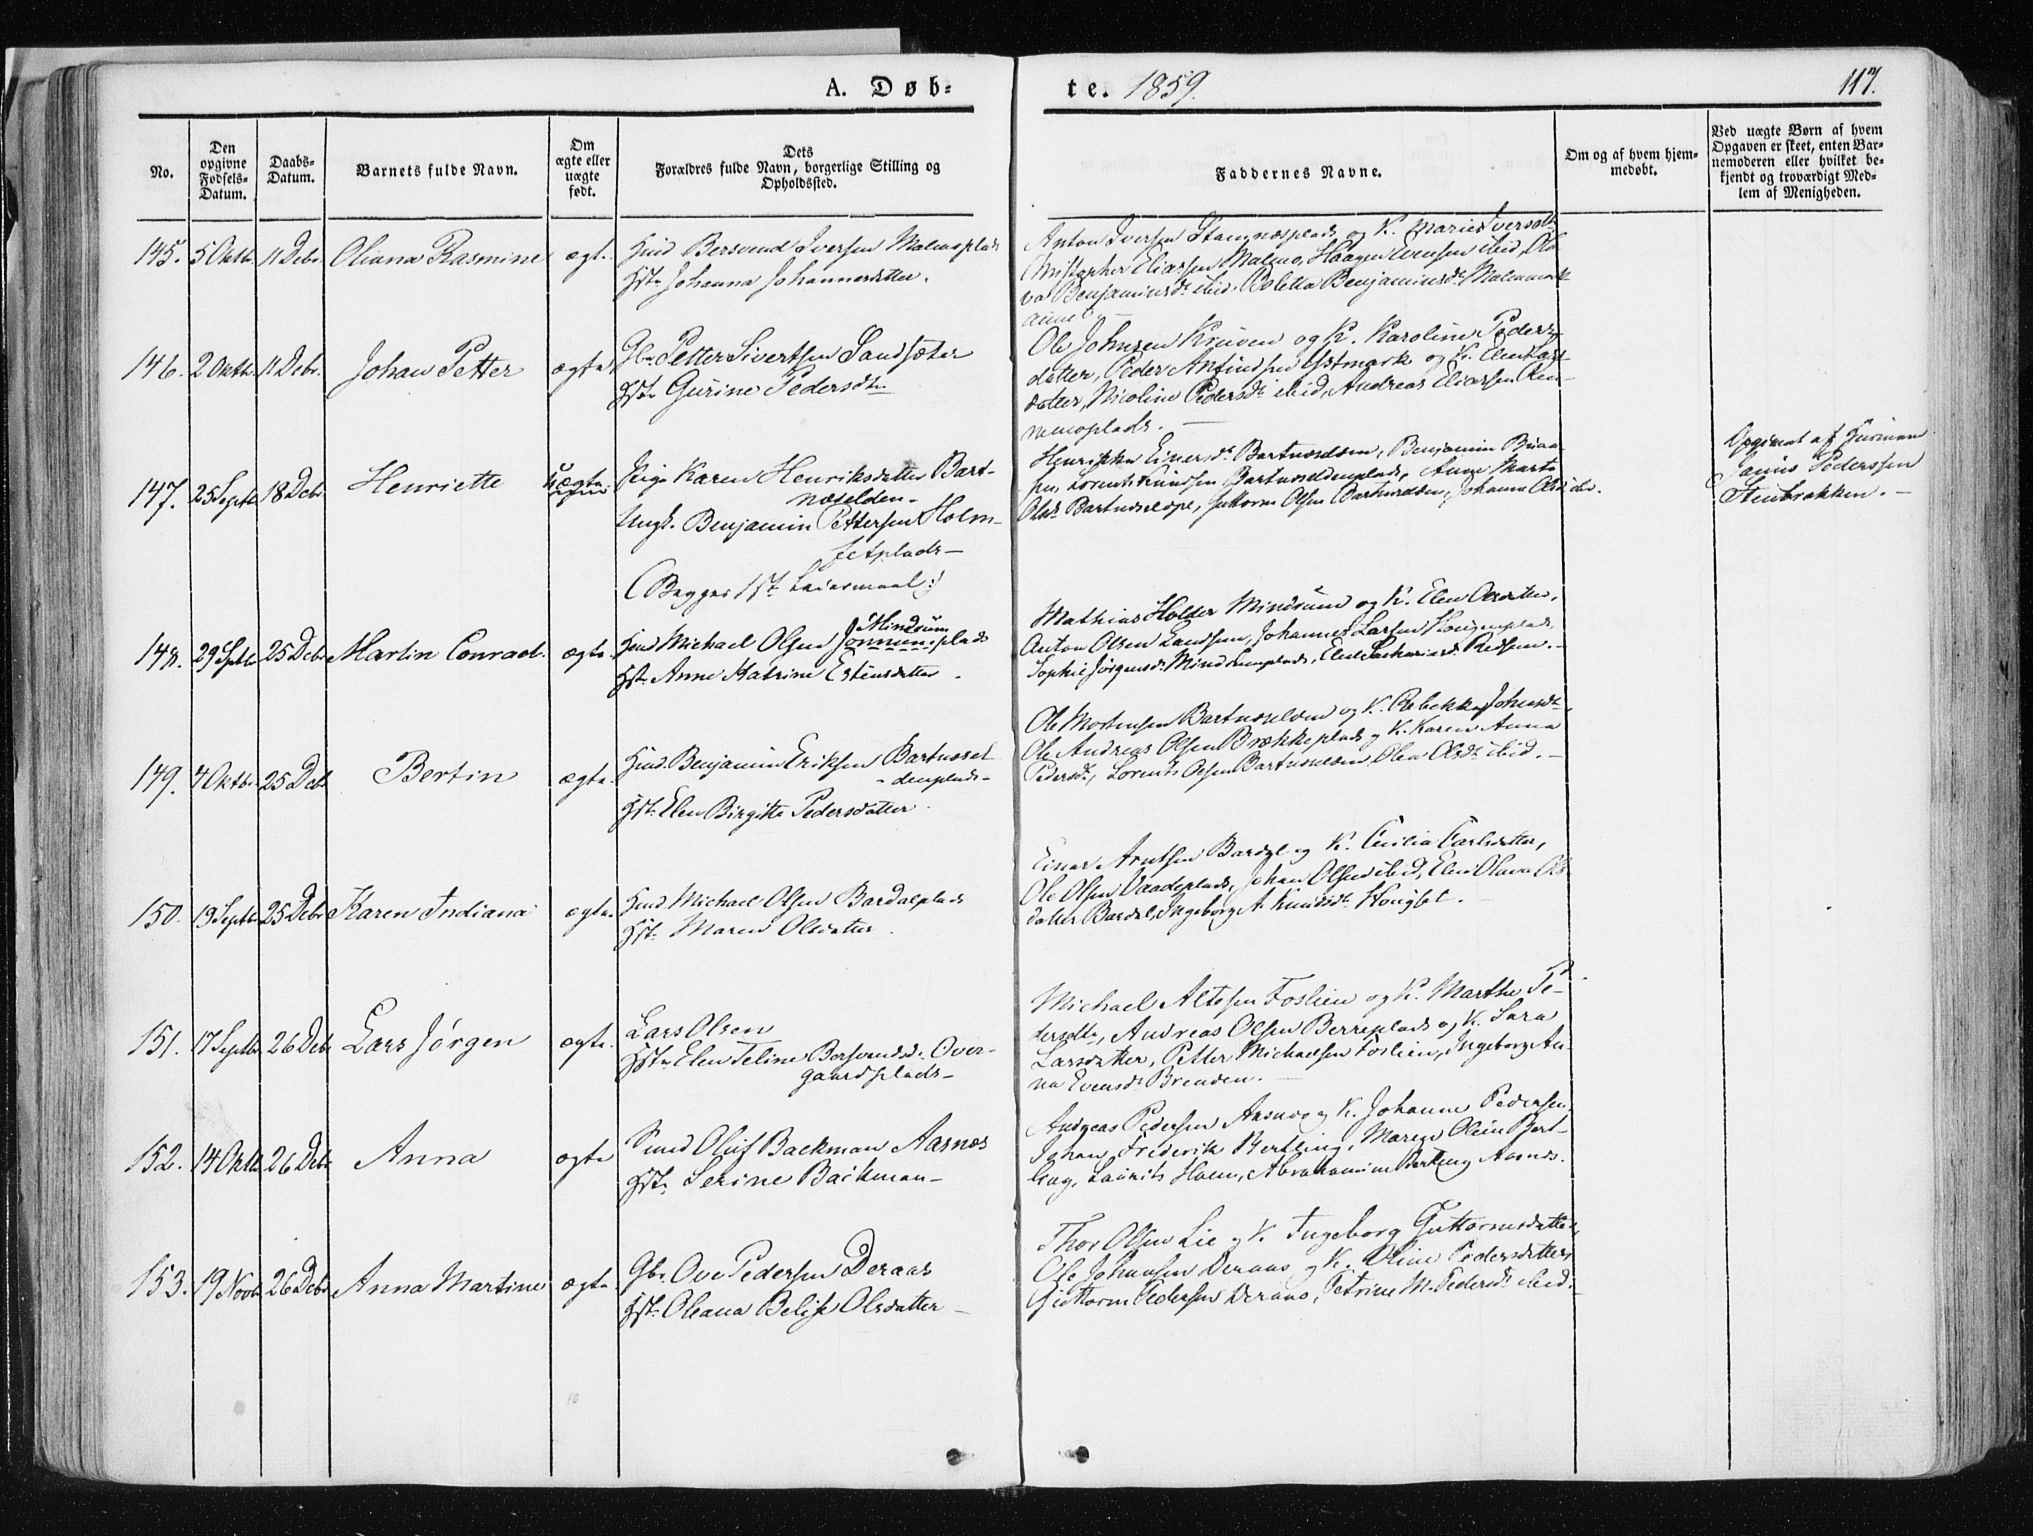 A. Døb-
te. 1859.
117.
No.
Den opgivne Fødsels-Datum.
Daabs-Datum.
Barnets fulde Navn.
Om ægte eller uægte født.
Dets
Forældres fulde Navn, borgerlige Stilling og
Opholdssted.
Faddernes Navne.
Om og af hvem hjem-
medøbt.
Ved uægte Børn af hvem
Opgaven er skeet, enten Bar-
nemoderen eller hvilket be-
kjendt og troværdigt Med-
lem af Menigheden.
145. 5 Oktb. 11 Debr. Oliana Rasmine ægte
Huusm. Bersvend Iversen Malmoplads
Hst. Johanna Johannesdatter.
Anton Iversen Stamnæsplads og K. Marie Iversdt.
Christopher Eliassen Malmo, Haagen Evensen ibid, Olo-
va Benjaminsdt. ibid. Boletta Benjaminsdt. Malmomark-
146. 2 Oktb. 11 Debr. Johan Petter ægte
Gbr. Petter Sivertsen Sandsæter
Hst. Gurine Pedersdtr.
Ole Johnsen Kruven og K. Karoline Peders-
datter, Peder Anfindsen Ystmark og K. Elen Lars-
datter, Nicoline Pedersdt. ibid, Andreas Eliassen Ren-
nemoplads.
147. 25 Septb. 18 Debr. Henriette Uægte
Pige Karen Henriksdatter Bart-
næselden.
Ungk. Benjamin Pettersen Holm-
setplads
(Begges 1ste Leiermaal:)
Henrikka Einersdt. Bartnæselden, Benjamin
Lorents Knudsen Bartnæseldenplads, Anne Marta
Olsdt. Guttorm Olsen Bartnæselden, Johanna Olsdt. ibid.
Opgivet af Huusmand
Janus Pederssen
Stenbrækken.
148. 29 Septb. 25 Debr. Martin Conrad. ægte
Huusm. Michael Olsen Mindrum
plads
Hst. Anne Katrine Estensdatter.
Mathias Holder Mindrum og K. Elen Olsdatter,
Anton Olsen Landsem, Johannes Larsen Hougenplads,
Sophie Jørgensdt. Mindrumplads, Elen Zachariasdt. Redsem.
149. 4 Oktb. 25 Debr. Bertin ægte
Huusm. Benjamin Eriksen Bartnæsel-
denplads-
Hst. Elen Birgitte Pedersdatter.
Ole Mortensen Bartnæselden og K. Rebekka Johnsdt.,
Ole Andreas Olsen Brækkeplads og K. Karen Anna
Pedersdt., Lorents Olsen Bartnæselden, Olea Olsdt. ibid.
150. 19 Septb. 25 Debr. Karen Indiana ægte
Huusm. Michael Olsen Bardalplads
Hst. Maren Olsdatter.
Einar Arntsen Bardal og K. Cecilia Carlsdatter,
Ole Olsen Vaadeplads, Johan Olsen ibid, Elen Olava Ols-
datter Bardal, Ingeborg Amundsdt.
151. 17 Septb. 26 Debr. Lars Jørgen ægte.
Lars Olsen
Hst. Elen Teline Bersvendsdt. Over-
gaardsplads-
Michael Altesen Foslien og K. Martha Pe-
dersdtr, Andreas Olsen Berreplads og K. Sara
Larsdatter, Petter Michaelsen Foslien, Ingeborg An-
na Evensdt. Brenden.
152. 14 Oktb. 26 Debr. Anna ægte
Smed Oluf Backman Aasnæs
Hst. Serine Backman-
Andreas Pedersen Aasnæs og K. Johanne Pedersen,
Johan Frederik Bertling, Maren Oline Bert-
ling, Laurits Holm, Abrahamine Bertling Aasnæs.
153. 19 Novb. 26 Debr. Anna Martine ægte
Gbr. Ove Pedersen Deraas
Hst. Oleana Belise Olsdatter
Thor Olsen Lie og K. Ingeborg Guttormsdatter,
Ole Johansen Deraas og K. Oline Pedersdatter,
Guttorm Pedersen Deraas, Petrine M. Pedersdt. ibid.